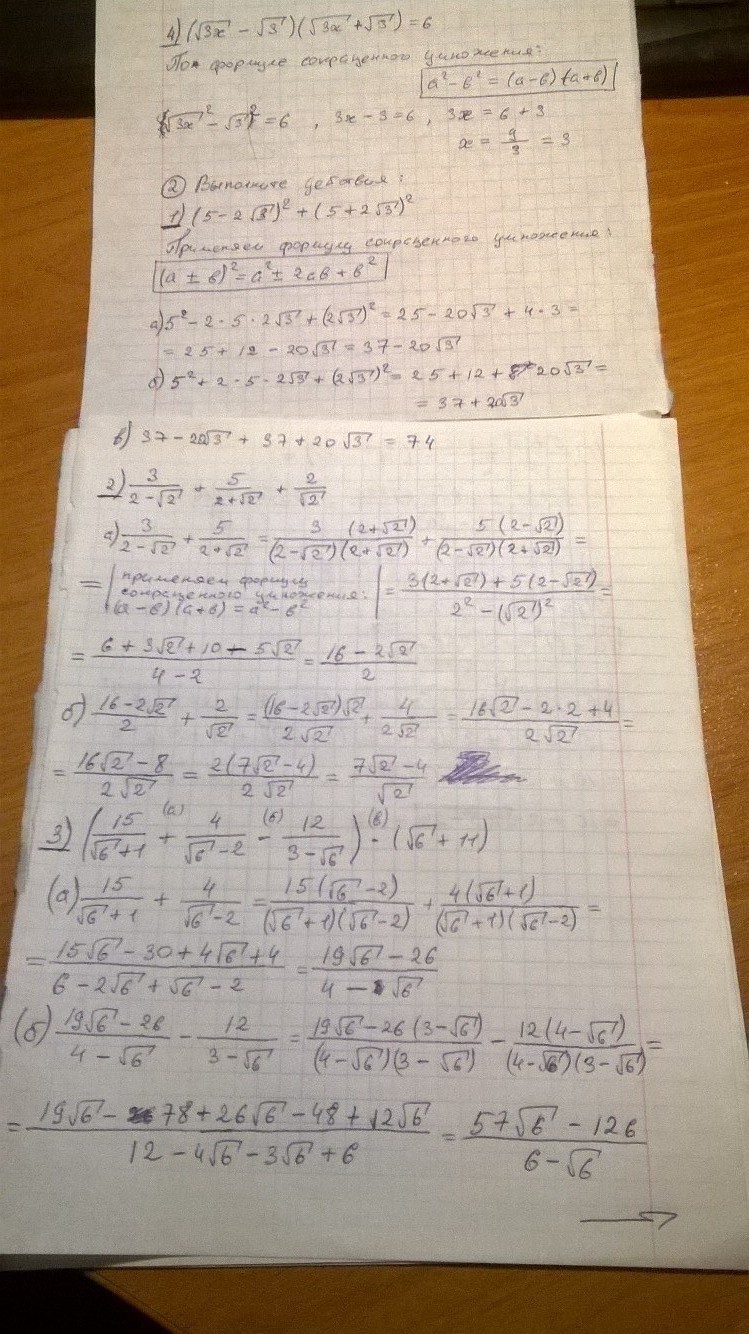 4) (√3x − √3)(√3x + √3) = 6
По формуле сокращенного умножения:
a² − в² = (a−в)(a+в)
(√3x² − √3)² = 6 , 3x − 3 = 6 , 3x = 6 + 3
x = 9/3 = 3
② Выполните действия:
1) (5 − 2√3)² + (5 + 2√3)²
Применяем формулу сокращенного умножения:
(a ± в)² = a² ± 2aв + в²
а) 5² − 2 · 5 · 2√3 + (2√3)² = 25 − 20√3 + 4 · 3 =
= 25 + 12 − 20√3 = 37 − 20√3
б) 5² + 2 · 5 · 2√3 + (2√3)² = 25 + 12 + 20√3 =
= 37 + 20√3
в) 37 − 20√3 + 37 + 20√3 = 74
2) 3/(2−√2) + 5/(2+√2) + 2/√2
а) 3/(2−√2) + 5/(2+√2) = 3(2+√2)/((2−√2)(2+√2)) + 5(2−√2)/((2−√2)(2+√2)) =
= | применяем формулу
сокращенного умножения:
(a−в)(a+в) = a² − в² | = (3(2+√2) + 5(2−√2))/(2² − (√2)²) =
= (6 + 3√2 + 10 − 5√2)/(4 − 2) = (16 − 2√2)/2
б) (16−2√2)/2 + 2/√2 = (16−2√2)√2/(2√2) + 4/(2√2) = (16√2 − 2·2 + 4)/(2√2) =
= (16√2 − 8)/(2√2) = 2(7√2 − 4)/(2√2) = (7√2 − 4)/√2
3) (15/(√6+1) + (а) 4/(√6−2) − (б) 12/(3−√6)) · (в) (√6 + 11)
(а) 15/(√6+1) + 4/(√6−2) = 15(√6−2)/((√6+1)(√6−2)) + 4(√6+1)/((√6+1)(√6−2)) =
= (15√6 − 30 + 4√6 + 4)/(6 − 2√6 + √6 − 2) = (19√6 − 26)/(4 − √6)
(б) (19√6 − 26)/(4 − √6) − 12/(3 − √6) = (19√6 − 26(3−√6))/((4−√6)(3−√6)) − 12(4−√6)/((4−√6)(3−√6)) =
= (19√6 − 78 + 26√6 − 48 + 12√6)/(12 − 4√6 − 3√6 + 6) = (57√6 − 126)/(6 − √6)